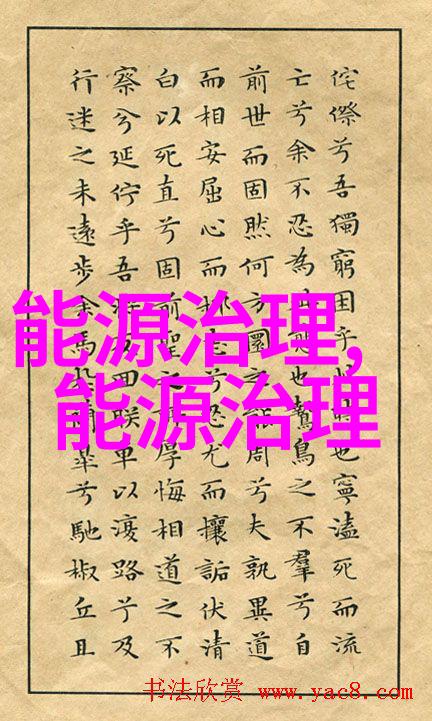 侘傺兮吾獨窮困乎此時也寧溘死而流
亡兮余不忍為此態也鷙鳥之不羣兮自
前世而固然何方圜之能周兮夫孰異道
而相安屈心而抑志兮忍尤而攘詬伏清
白以死直兮固前聖之所厚悔相道之不
察兮延佇乎吾將反回朕車以復路兮及
行迷之未遠步余馬於蘭皋兮馳椒丘且
能源治理,
能源治理
书法欣赏 www.yac8.com